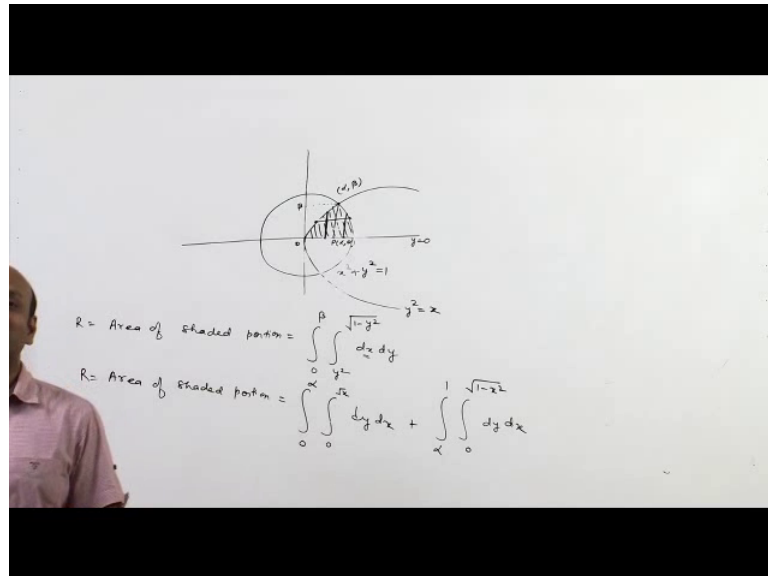 (α, β)
β
0
P(α, 0)
y=0
x² + y² = 1
y² = x
R = Area of shaded portion = ∫₀^β ∫_{y²}^{√(1-y²)} dx dy
R = Area of shaded portion = ∫₀^α ∫₀^{√x} dy dx + ∫_α^1 ∫₀^{√(1-x²)} dy dx